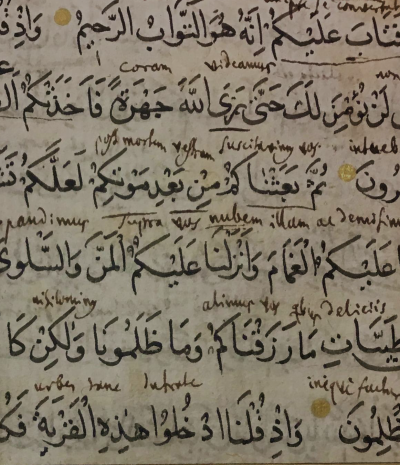 فتاب عليكم إنه هو التواب الرحيم وإذ ق
coram videamus non
لن نؤمن لك حتى نرى الله جهرة فأخذتكم ال
post mortem vestram suscitavimus vos
رون ثم بعثناكم من بعد موتكم لعلكم تش
pandimus supra vos nubem illam ac demisim
ا عليكم الغمام وأنزلنا عليكم المن والسلوى
vos deliciis
طيبات ما رزقناكم وما ظلمونا ولكن كا
urbem hanc Intrate
ظلمون وإذ قلنا ادخلوا هذه القرية فك